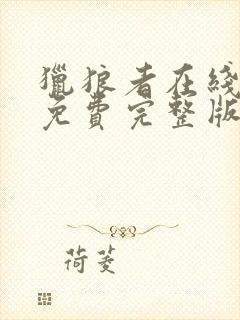 獵狼者在綫
免費完整版
荷蓤